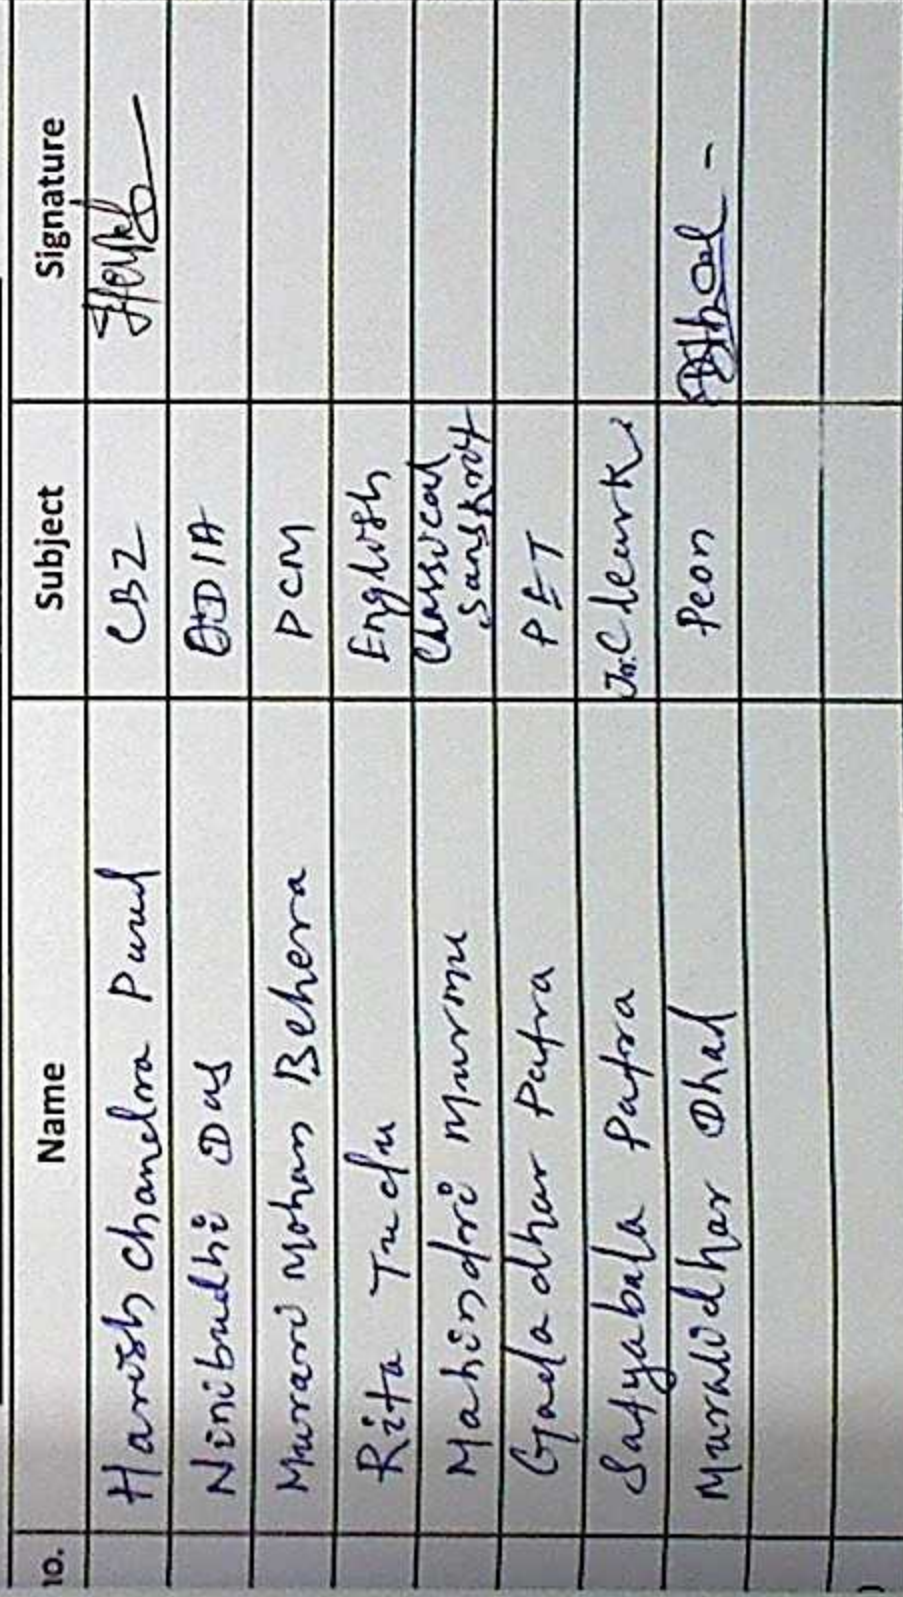 10. Name Subject Signature
Harish Chandra Paul CBZ
Ninibudhi Das ODIA
Murari Mohan Behera PCM
Rita Tudu English
Mahindri Murmu Classical Sanskrit
Gadadhar Patra PET
Satyabala Patra Jr. Cleark
Muralidhar Dhal Peon
)